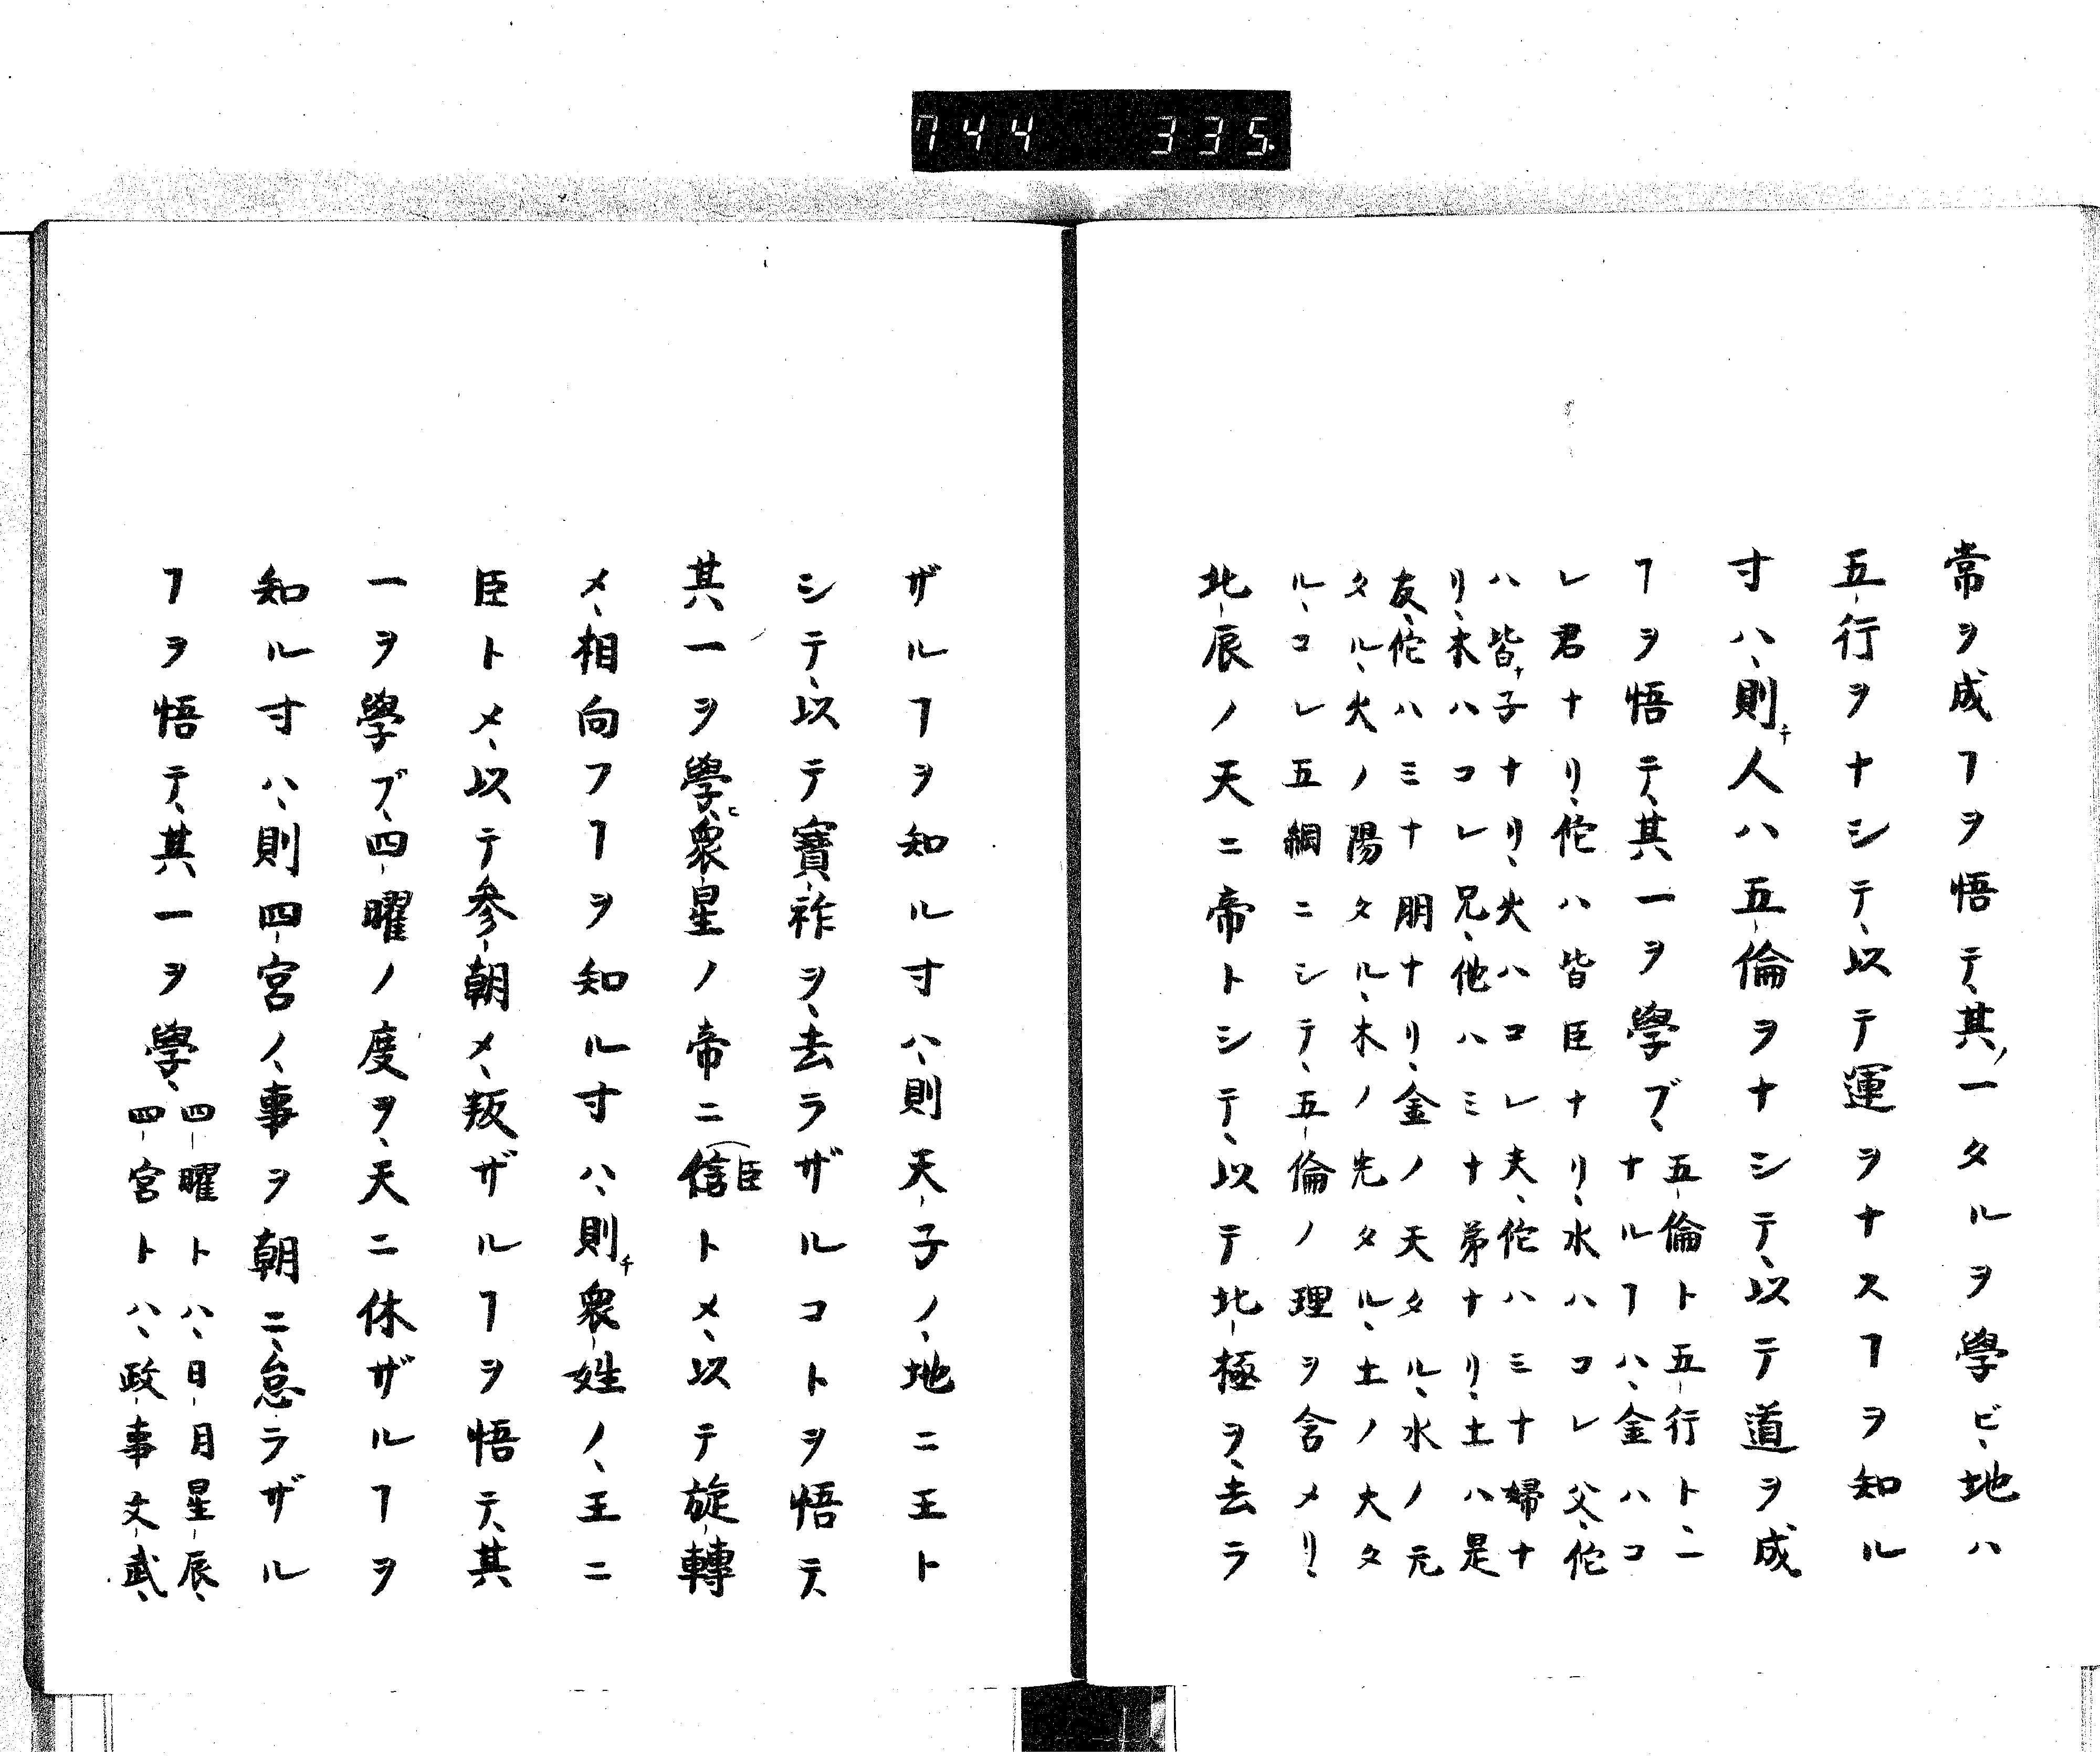 744 335.
常ヲ成ヿヲ悟テ、其ノ一タルヲ學ビ、地ハ
五行ヲナシテ、以テ運ヲナスヿヲ知ル
寸ハ、則チ人ハ五倫ヲナシテ、以テ道ヲ成
ヿヲ悟テ、其一ヲ學ブ、五倫ト五行ト、一
ナルヿハ、金ハコ
レ君ナリ、佗ハ皆臣ナリ、水ハコレ父、佗
ハ皆ナ子ナリ、火ハコレ夫、佗ハミナ婦ナ
リ、木ハコレ兄、他ハミナ弟ナリ、土ハ是
友、佗ハミナ朋ナリ、金ノ天タル、水ノ元
タル、火ノ陽タル、木ノ先タル、土ノ大タ
ル、コレ五綱ニシテ、五倫ノ理ヲ含メリ、
北辰ノ天ニ帝トシテ、以テ北極ヲ、去ラ
ザルヿヲ知ル寸ハ、則天子ノ、地ニ王ト
シテ、以テ寶祚ヲ、去ラザルコトヲ悟テ、
其一ヲ學ヒ、衆星ノ帝ニ信臣トメ、以テ旋轉
メ、相向フヿヲ知ル寸ハ、則チ衆姓ノ、王ニ
臣トメ、以テ參朝メ、叛ザルヿヲ悟テ、其
一ヲ學ブ、四曜ノ度ヲ、天ニ休ザルヿヲ
知ル寸ハ、則四宮ノ、事ヲ朝ニ、怠ラザル
ヿヲ悟テ、其一ヲ學、四曜トハ、日月星辰、
四宮トハ、政事文武、